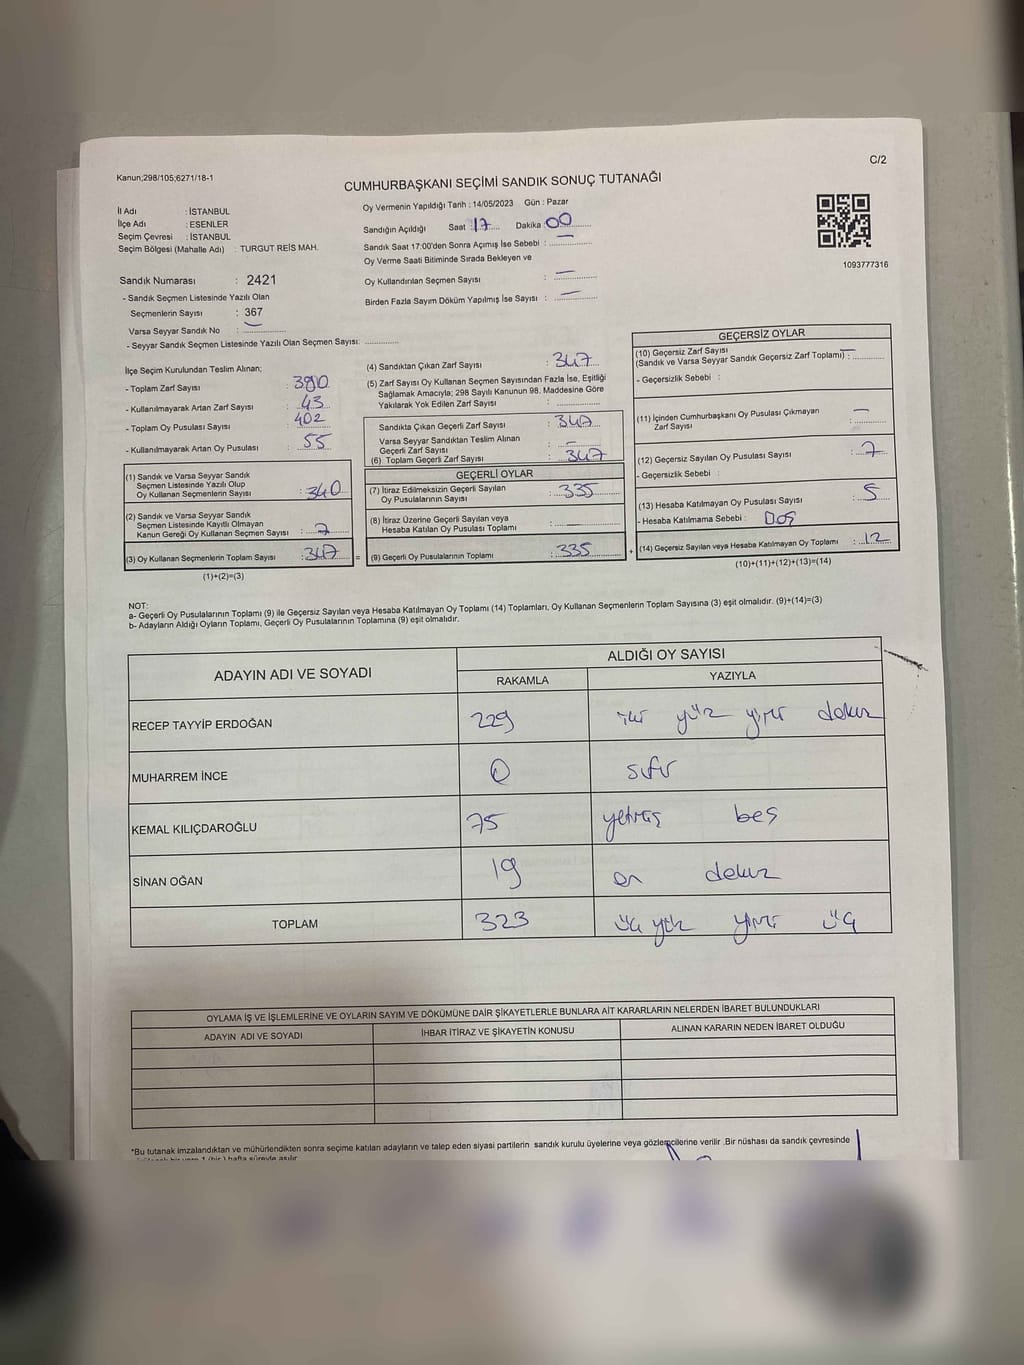 C/2
Kanun;298/105;6271/18-1
CUMHURBAŞKANI SEÇİMİ SANDIK SONUÇ TUTANAĞI
İl Adı : İSTANBUL
İlçe Adı : ESENLER
Seçim Çevresi : İSTANBUL
Seçim Bölgesi (Mahalle Adı) : TURGUT REİS MAH.
Oy Vermenin Yapıldığı Tarih : 14/05/2023 Gün : Pazar
Sandığın Açıldığı Saat : 17 Dakika : 00
Sandık Saat 17:00'den Sonra Açımış İse Sebebi : —
Oy Verme Saati Bitiminde Sırada Bekleyen ve
Oy Kullandırılan Seçmen Sayısı : —
Birden Fazla Sayım Döküm Yapılmış İse Sayısı : —
1093777316
Sandık Numarası : 2421
- Sandık Seçmen Listesinde Yazılı Olan
Seçmenlerin Sayısı : 367
Varsa Seyyar Sandık No : —
- Seyyar Sandık Seçmen Listesinde Yazılı Olan Seçmen Sayısı:
İlçe Seçim Kurulundan Teslim Alınan;
- Toplam Zarf Sayısı : 390
- Kullanılmayarak Artan Zarf Sayısı : 43
- Toplam Oy Pusulası Sayısı : 402
- Kullanılmayarak Artan Oy Pusulası : 55
(1) Sandık ve Varsa Seyyar Sandık
Seçmen Listesinde Yazılı Olup
Oy Kullanan Seçmenlerin Sayısı : 340
(2) Sandık ve Varsa Seyyar Sandık
Seçmen Listesinde Kayıtlı Olmayan
Kanun Gereği Oy Kullanan Seçmen Sayısı : 7
(3) Oy Kullanan Seçmenlerin Toplam Sayısı : 347 =
(1)+(2)=(3)
(4) Sandıktan Çıkan Zarf Sayısı : 347
(5) Zarf Sayısı Oy Kullanan Seçmen Sayısından Fazla İse, Eşitliği
Sağlamak Amacıyla; 298 Sayılı Kanunun 98. Maddesine Göre
Yakılarak Yok Edilen Zarf Sayısı :
Sandıkta Çıkan Geçerli Zarf Sayısı : 347
Varsa Seyyar Sandıktan Teslim Alınan
Geçerli Zarf Sayısı : —
(6) Toplam Geçerli Zarf Sayısı : 347
GEÇERLİ OYLAR
(7) İtiraz Edilmeksizin Geçerli Sayılan
Oy Pusulalarının Sayısı : 335
(8) İtiraz Üzerine Geçerli Sayılan veya
Hesaba Katılan Oy Pusulası Toplamı : —
(9) Geçerli Oy Pusulalarının Toplamı : 335 +
GEÇERSİZ OYLAR
(10) Geçersiz Zarf Sayısı
(Sandık ve Varsa Seyyar Sandık Geçersiz Zarf Toplamı) : —
- Geçersizlik Sebebi :
(11) İçinden Cumhurbaşkanı Oy Pusulası Çıkmayan
Zarf Sayısı : —
(12) Geçersiz Sayılan Oy Pusulası Sayısı : 7
- Geçersizlik Sebebi :
(13) Hesaba Katılmayan Oy Pusulası Sayısı : 5
- Hesaba Katılmama Sebebi : Boş
(14) Geçersiz Sayılan veya Hesaba Katılmayan Oy Toplamı : 12
(10)+(11)+(12)+(13)=(14)
NOT:
a- Geçerli Oy Pusulalarının Toplamı (9) ile Geçersiz Sayılan veya Hesaba Katılmayan Oy Toplamı (14) Toplamları, Oy Kullanan Seçmenlerin Toplam Sayısına (3) eşit olmalıdır. (9)+(14)=(3)
b- Adayların Aldığı Oyların Toplamı, Geçerli Oy Pusulalarının Toplamına (9) eşit olmalıdır.
ADAYIN ADI VE SOYADI ALDIĞI OY SAYISI
RAKAMLA YAZIYLA
RECEP TAYYİP ERDOĞAN 229 iki yüz yirmi dokuz
MUHARREM İNCE 0 sıfır
KEMAL KILIÇDAROĞLU 75 yetmiş beş
SİNAN OĞAN 19 on dokuz
TOPLAM 323 üç yüz yirmi üç
OYLAMA İŞ VE İŞLEMLERİNE VE OYLARIN SAYIM VE DÖKÜMÜNE DAİR ŞİKAYETLERLE BUNLARA AİT KARARLARIN NELERDEN İBARET BULUNDUKLARI
ADAYIN ADI VE SOYADI İHBAR İTİRAZ VE ŞİKAYETİN KONUSU ALINAN KARARIN NEDEN İBARET OLDUĞU
*Bu tutanak imzalandıktan ve mühürlendikten sonra seçime katılan adayların ve talep eden siyasi partilerin sandık kurulu üyelerine veya gözlemcilerine verilir .Bir nüshası da sandık çevresinde